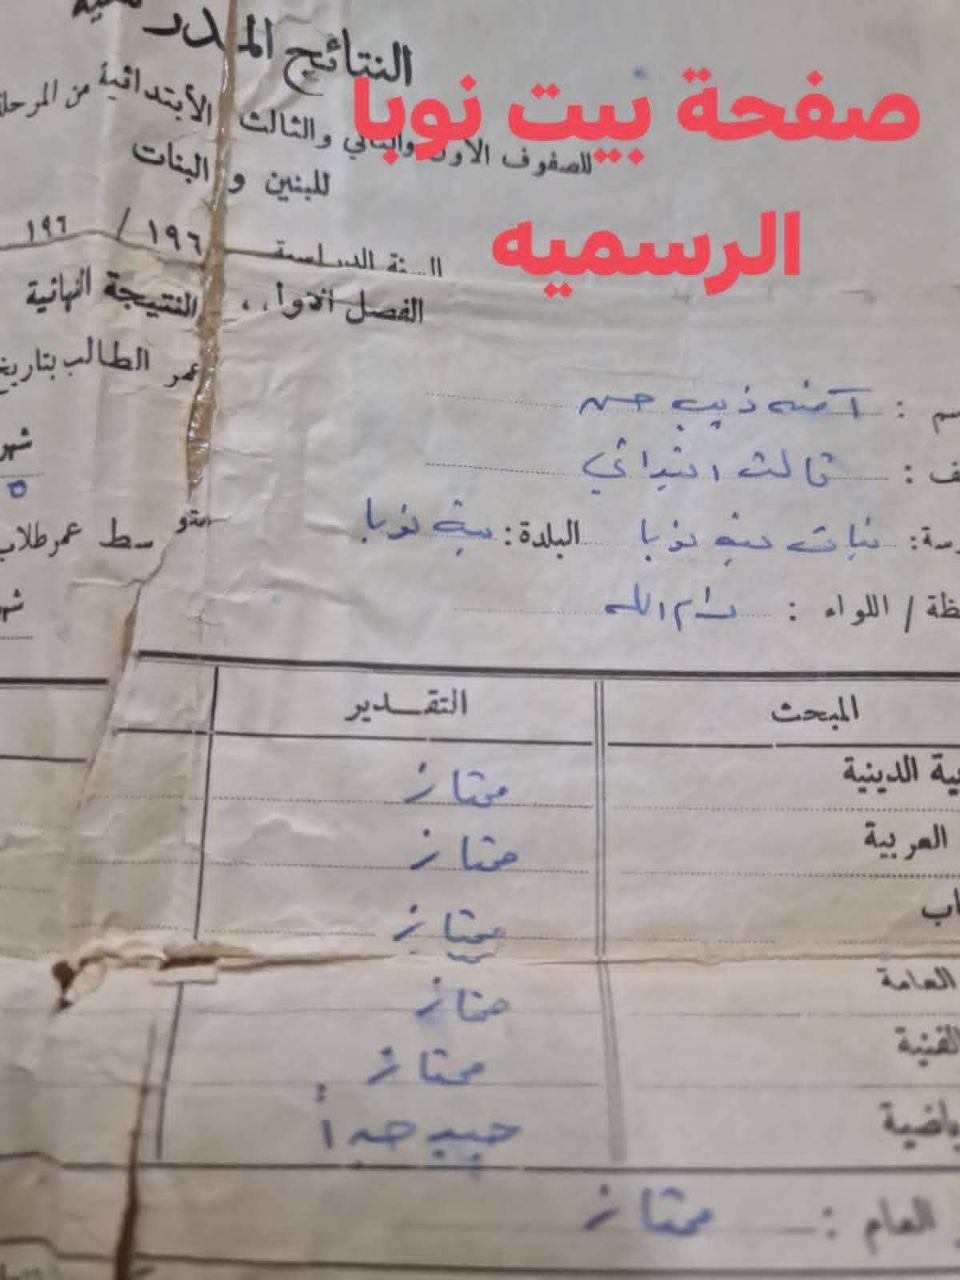 صفحة بيت نوبا
الرسميه
النتائج المدر
للصفوف الأول والثاني والثالث الأبتدائية من المرحلة
للبنين و البنات
السنة الدراسية ١٩٦ / ١٩٦
الفصل الأول، النتيجة النهائية
عمر الطالب بتاريخ
سم : آمنه ذيب حسن
شهر
ف : ثالث ابتدائي
٥
رسة: بنات بيت نوبا البلدة: بيت نوبا
متوسط عمر طلاب
ظة / اللواء : رام الله
شهر
المبحث التقدير
ية الدينية ممتاز
العربية ممتاز
اب ممتاز
العامة ممتاز
الفنية ممتاز
ياضية جيد جداً
العام : ممتاز